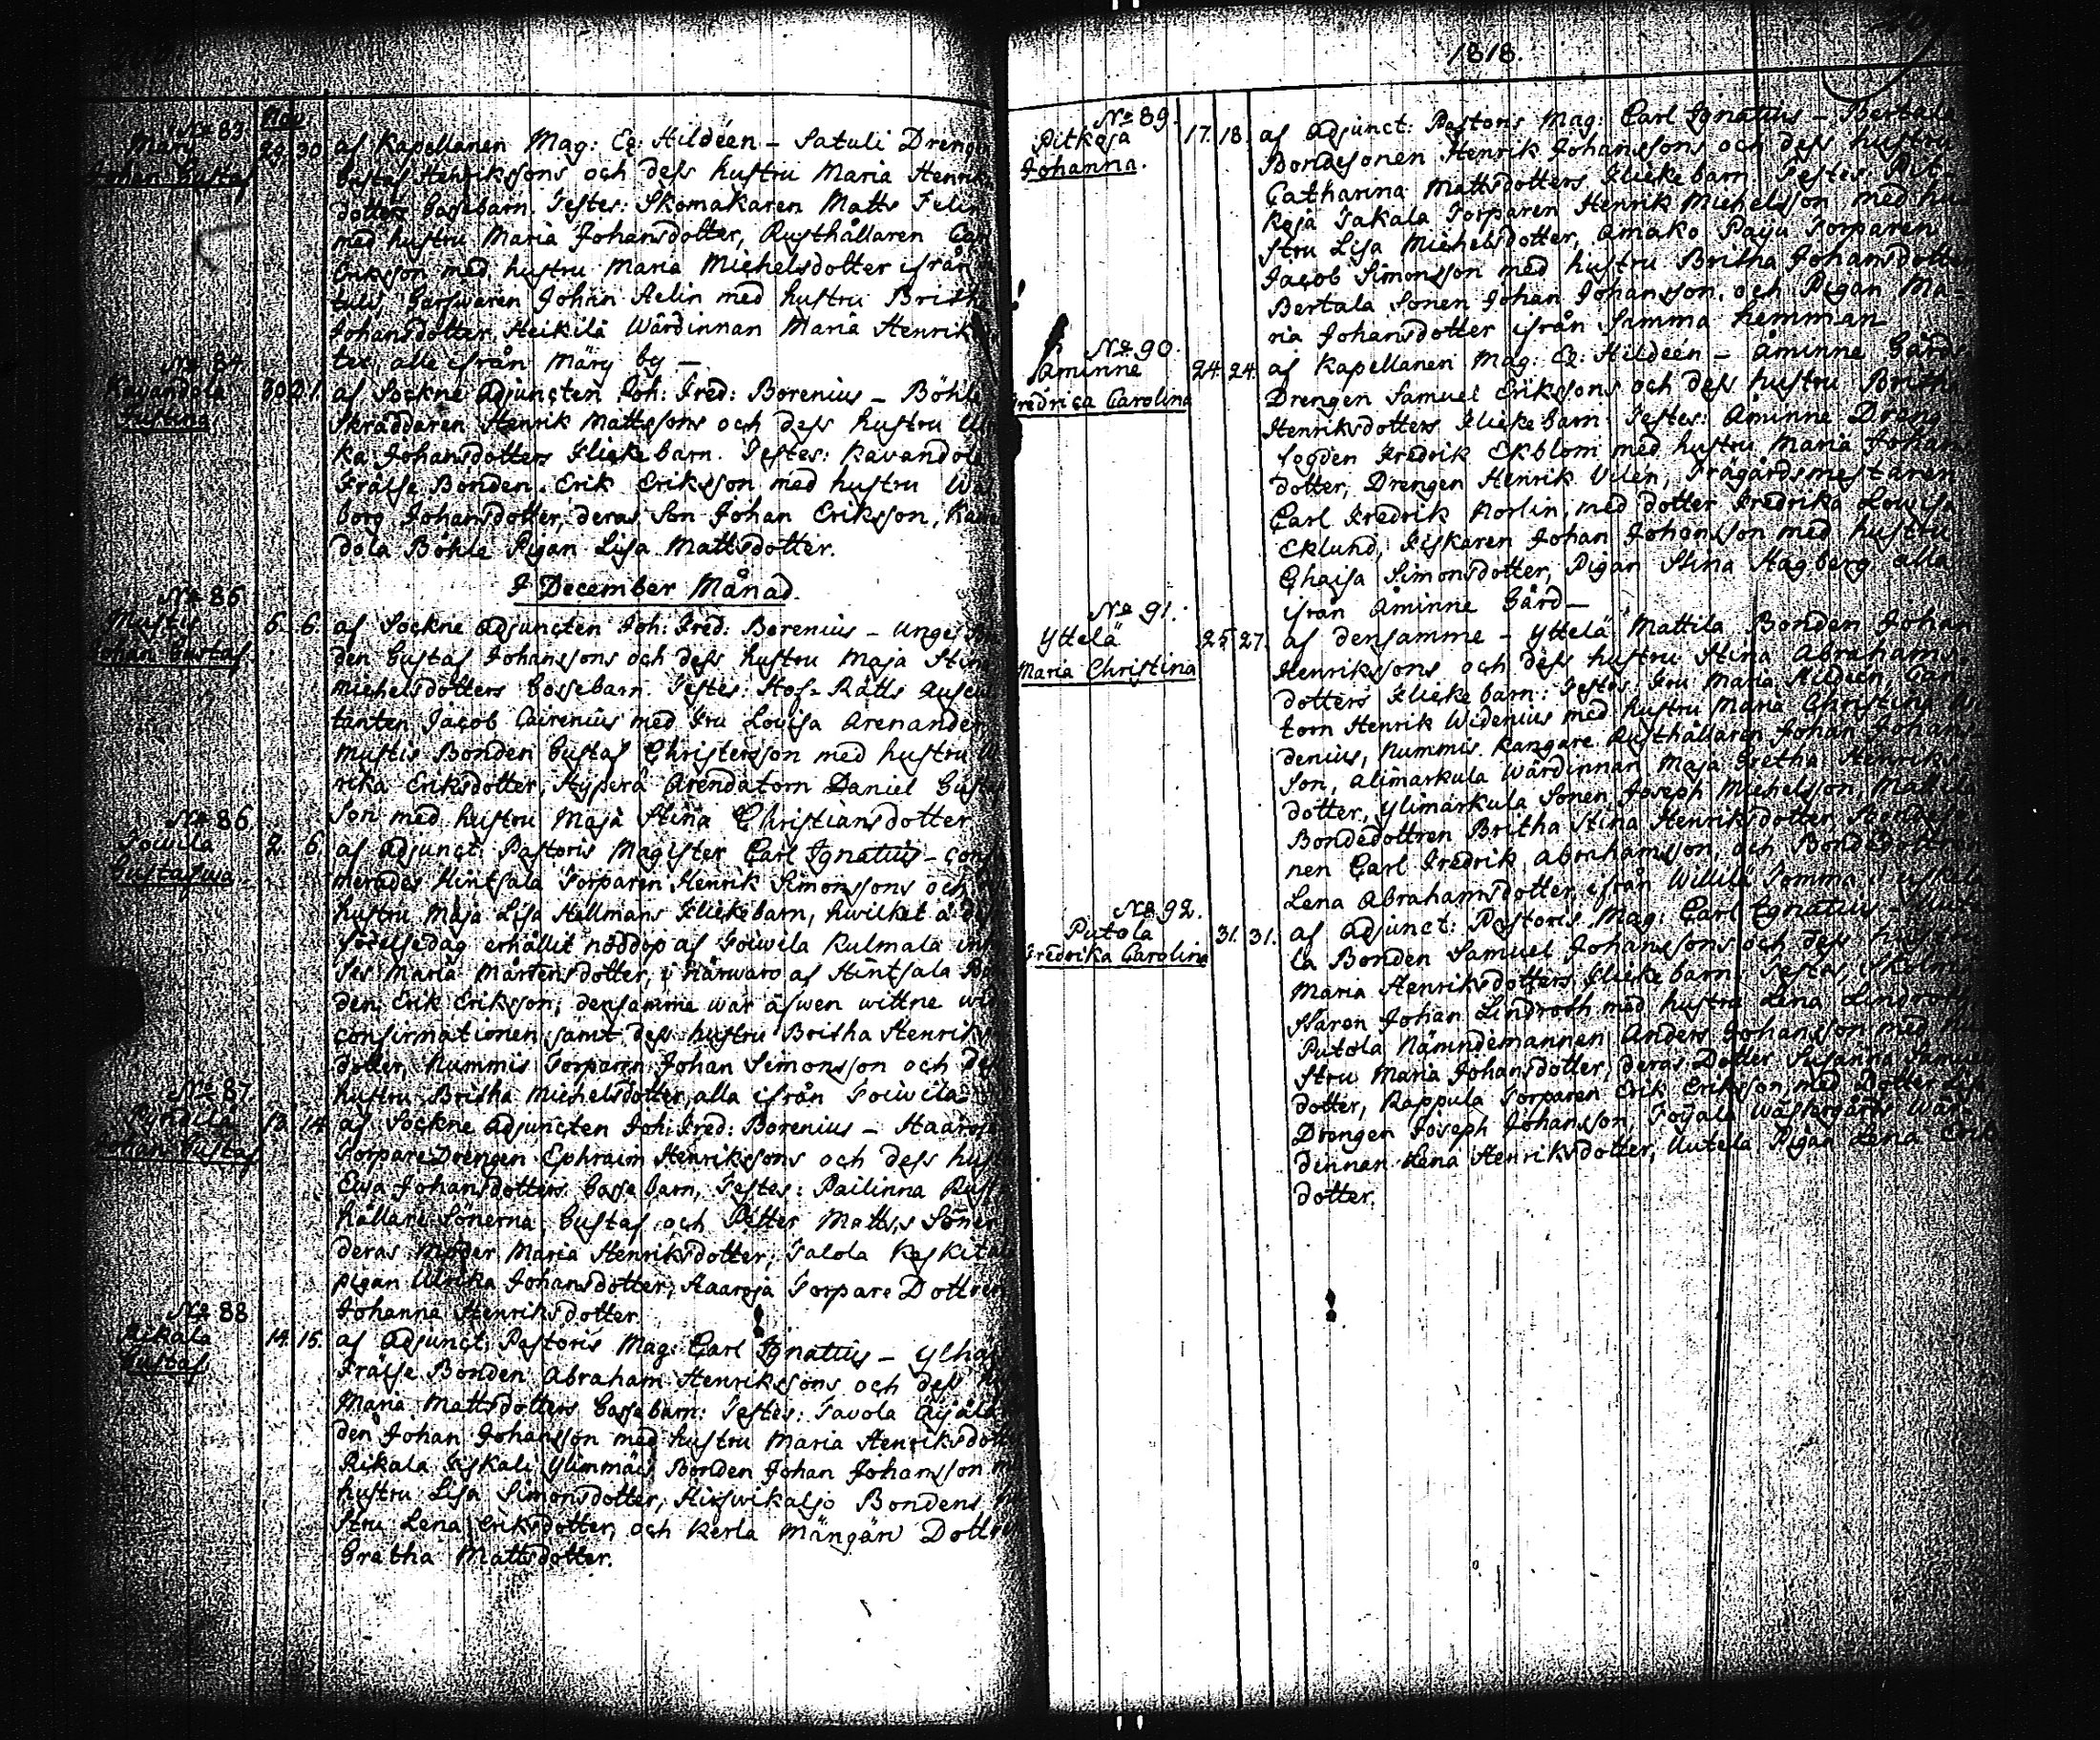 1818.
Nov.
No 83.
Märy
Johan Gustaf
29. 30.
af Kapellanen Mag: Er: Hildéen – Satuli Drengen
Gustaf Henrikssons och dess hustru Maria Henriks
dotters Gossebarn. Testes: Skomakaren Matts Felin
med hustru Maria Johansdotter, Rusthållaren Carl
Eriksson med hustru Maria Michelsdotter ifrån
tuli, Garfwaren Johan Aelin med hustru Britha
Johansdotter, Heikilä Wärdinnan Maria Henriks
ter, alla ifrån Märy by —
No 84.
Kavandola
Justina
30. 21.
af Sockne Adjuncten Joh: Fred: Borenius – Böhle
Skräddaren Henrik Mattssons och dess hustru Ul
ka Johansdotters Flickebarn. Testes: Kavandola
Frälse Bonden Erik Eriksson med hustru Wal
borg Johansdotter, deras Son Johan Eriksson, Kavan
dola Böhle Pigan Lisa Mattsdotter.
I December Månad.
No 85
Mustis
Johan Gustaf.
6. 6.
af Sockne Adjuncten Joh: Fred: Borenius – unge Bon
den Gustaf Johanssons och dess hustru Maja Stina
Michelsdotters Gossebarn. Testes: Hof-Rätts Auscul
tanten Jacob Cairenius med Fru Lovisa Arenander
Mustis Bonden Gustaf Christersson med hustru Ul
rika Eriksdotter, Hyperä Arendatorn Daniel Gustaf
Son med hustru Maja Stina Christiansdotter
No 86.
Toiwila
Gustafwa
2. 6.
af Adjunct: Pastoris Magister Carl Ignatius – conf
merades Hintsala Torparen Henrik Simonssons och
hustru Maja Lisa Hellmans Flickebarn, hwilket å dess
födelsedag erhållit nöddop af Toiwila Kulmala
Maria Mårtensdotter, i närwaro af Hintsala Bon
den Erik Eriksson; densamme war äfwen wittne wid
confirmationen samt dess hustru Britha Henriks
dotter, Nummis Torparen Johan Simonsson och dess
hustru Britha Michelsdotter, alla ifrån Toiwila
No 87.
Pyndilä
Johan Gustaf
13. 14.
af Sockne Adjuncten Joh: Fred: Borenius – Haaroja
Torpare Drengen Ephraim Henrikssons och dess hust
Ewa Johansdotters Gossebarn, Testes: Pailinna Rust
hållare Sönerna, Gustaf och Petter Matts Söner
deras Moder Maria Henriksdotter, Talola Keskitalo
pigan Ulrika Johansdotter, Haaroja Torpare Dottren
Johanna Henriksdotter
No 88
Rikala
Gustaf
14. 15.
af Adjunct: Pastoris Mag: Carl Ignatius – Ylhä
Frälse Bonden Abraham Henrikssons och dess
Maria Mattsdotters Gossebarn: Testes: Tavola Äijälä
den Johan Johansson med hustru Maria Henriksdotter
Rikala Iskali Ylimmäis Bonden Johan Johansson m
hustru Lisa Simonsdotter, Hirswikalio Bondens hu
stru Lena Eriksdotter, och Kerla Mängän Dottren
Gretha Mattsdotter.
No 89.
Pitkoja
Johanna.
17. 18.
af Adjunct: Pastoris Mag: Carl Ignatius – Bertala
Bondesonen Henrik Johanssons och dess hustru
Catharina Mattsdotters Flickebarn. Testes: Pit-
koja Takala Torparen Henrik Michelsson med hu
stru Lisa Michelsdotter, Amako Paiju Torparen
Jacob Simonsson med hustru Britha Johansdotter
Bertala Sonen Johan Johansson, och Pigan Ma-
ria Johansdotter ifrån Samma hemman
No 90.
Åminne
Fredrica Carolina
24. 24.
af Kapellanen Mag: Er: Hildéen – Åminne Gårds
Drengen Samuel Erikssons och dess hustru Britha
Henriksdotters Flickebarn. Testes: Åminne Dreng
fogden Fredrik Ekblom med hustru Maria Johans
dotter, Drengen Henrik Vilén, Trägårdsmestaren
Carl Fredrik Norlin, med dotter Fredrika Lovisa
Eklund, Fiskaren Johan Johansson med hustru
Chaisa Simonsdotter, Pigan Stina Hagberg alla
ifrån Åminne Gård —
No 91.
Yttelä
Maria Christina
25. 27.
af densamme – Yttelä Mattila Bonden Johan
Henrikssons och dess hustru Stina Abrahams
dotters Flickebarn: Testes, Fru Maria Hildéen, Can
torn Henrik Widenius med hustru Maria Christina Wi
denius, Nummis Kangare Rusthållaren Johan Johans-
Son, Alimarkula Wärdinnan Maja Gretha Henriks
dotter, Ylimarkula Sonen Joseph Michelsson, Mattila
Bondedottren Britha Stina Henriksdotter, Bondeso
nen Carl Fredrik Abrahamsson, och Bondedottren
Lena Abrahamsdotter, ifrån Willilä
No 92.
Putola
Fredrika Carolina
31. 31.
af Adjunct: Pastoris Mag: Carl Ignatius – Uute
la Bonden Samuel Johanssons och dess hustru
Maria Henriksdotters Flickebarn. Testes, Skolmä
staren Johan Lindroth med hustru Lena Lindroth
Putola Nämndemannen Anders Johansson med hu
stru Maria Johansdotter, deras Dotter Susanna Samuels
dotter, Kappula Torparen Erik Eriksson med Dotter Lisa
Drengen Joseph Johansson, Toijala Wästergårds Wär-
dinnan Lena Henriksdotter, Uutela Pigan Lena Eriks
dotter.